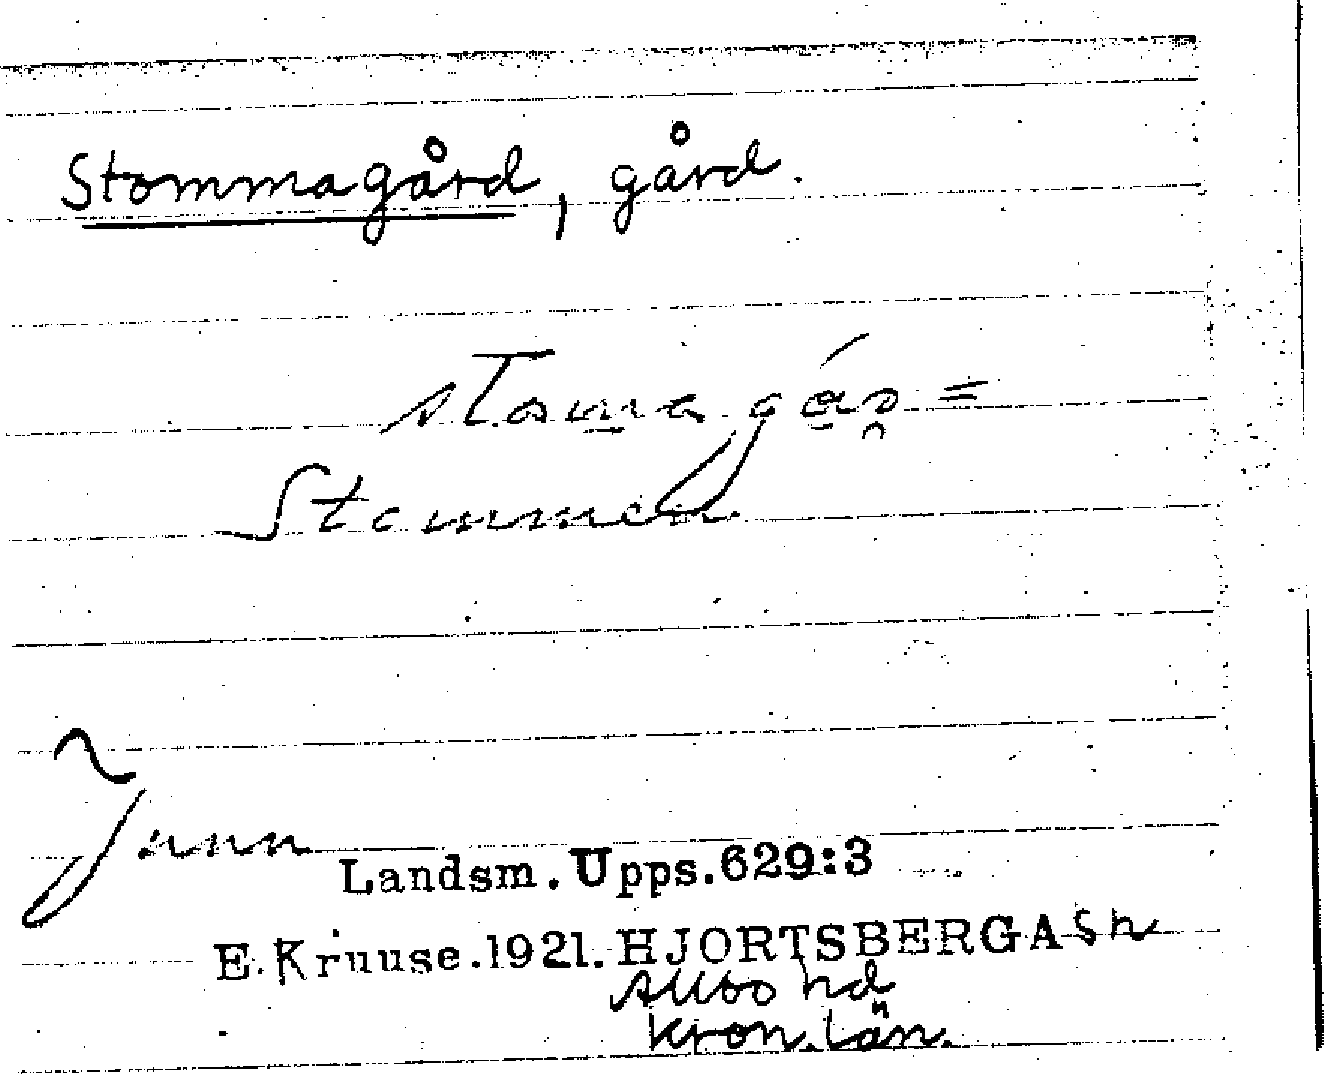 Stommagård, gård.
stoma gás =
Stommen
Junn
Landsm. Upps. 629:3
E. Kruuse. 1921. HJORTSBERGA Sn
Allbo hd
Kron. län.